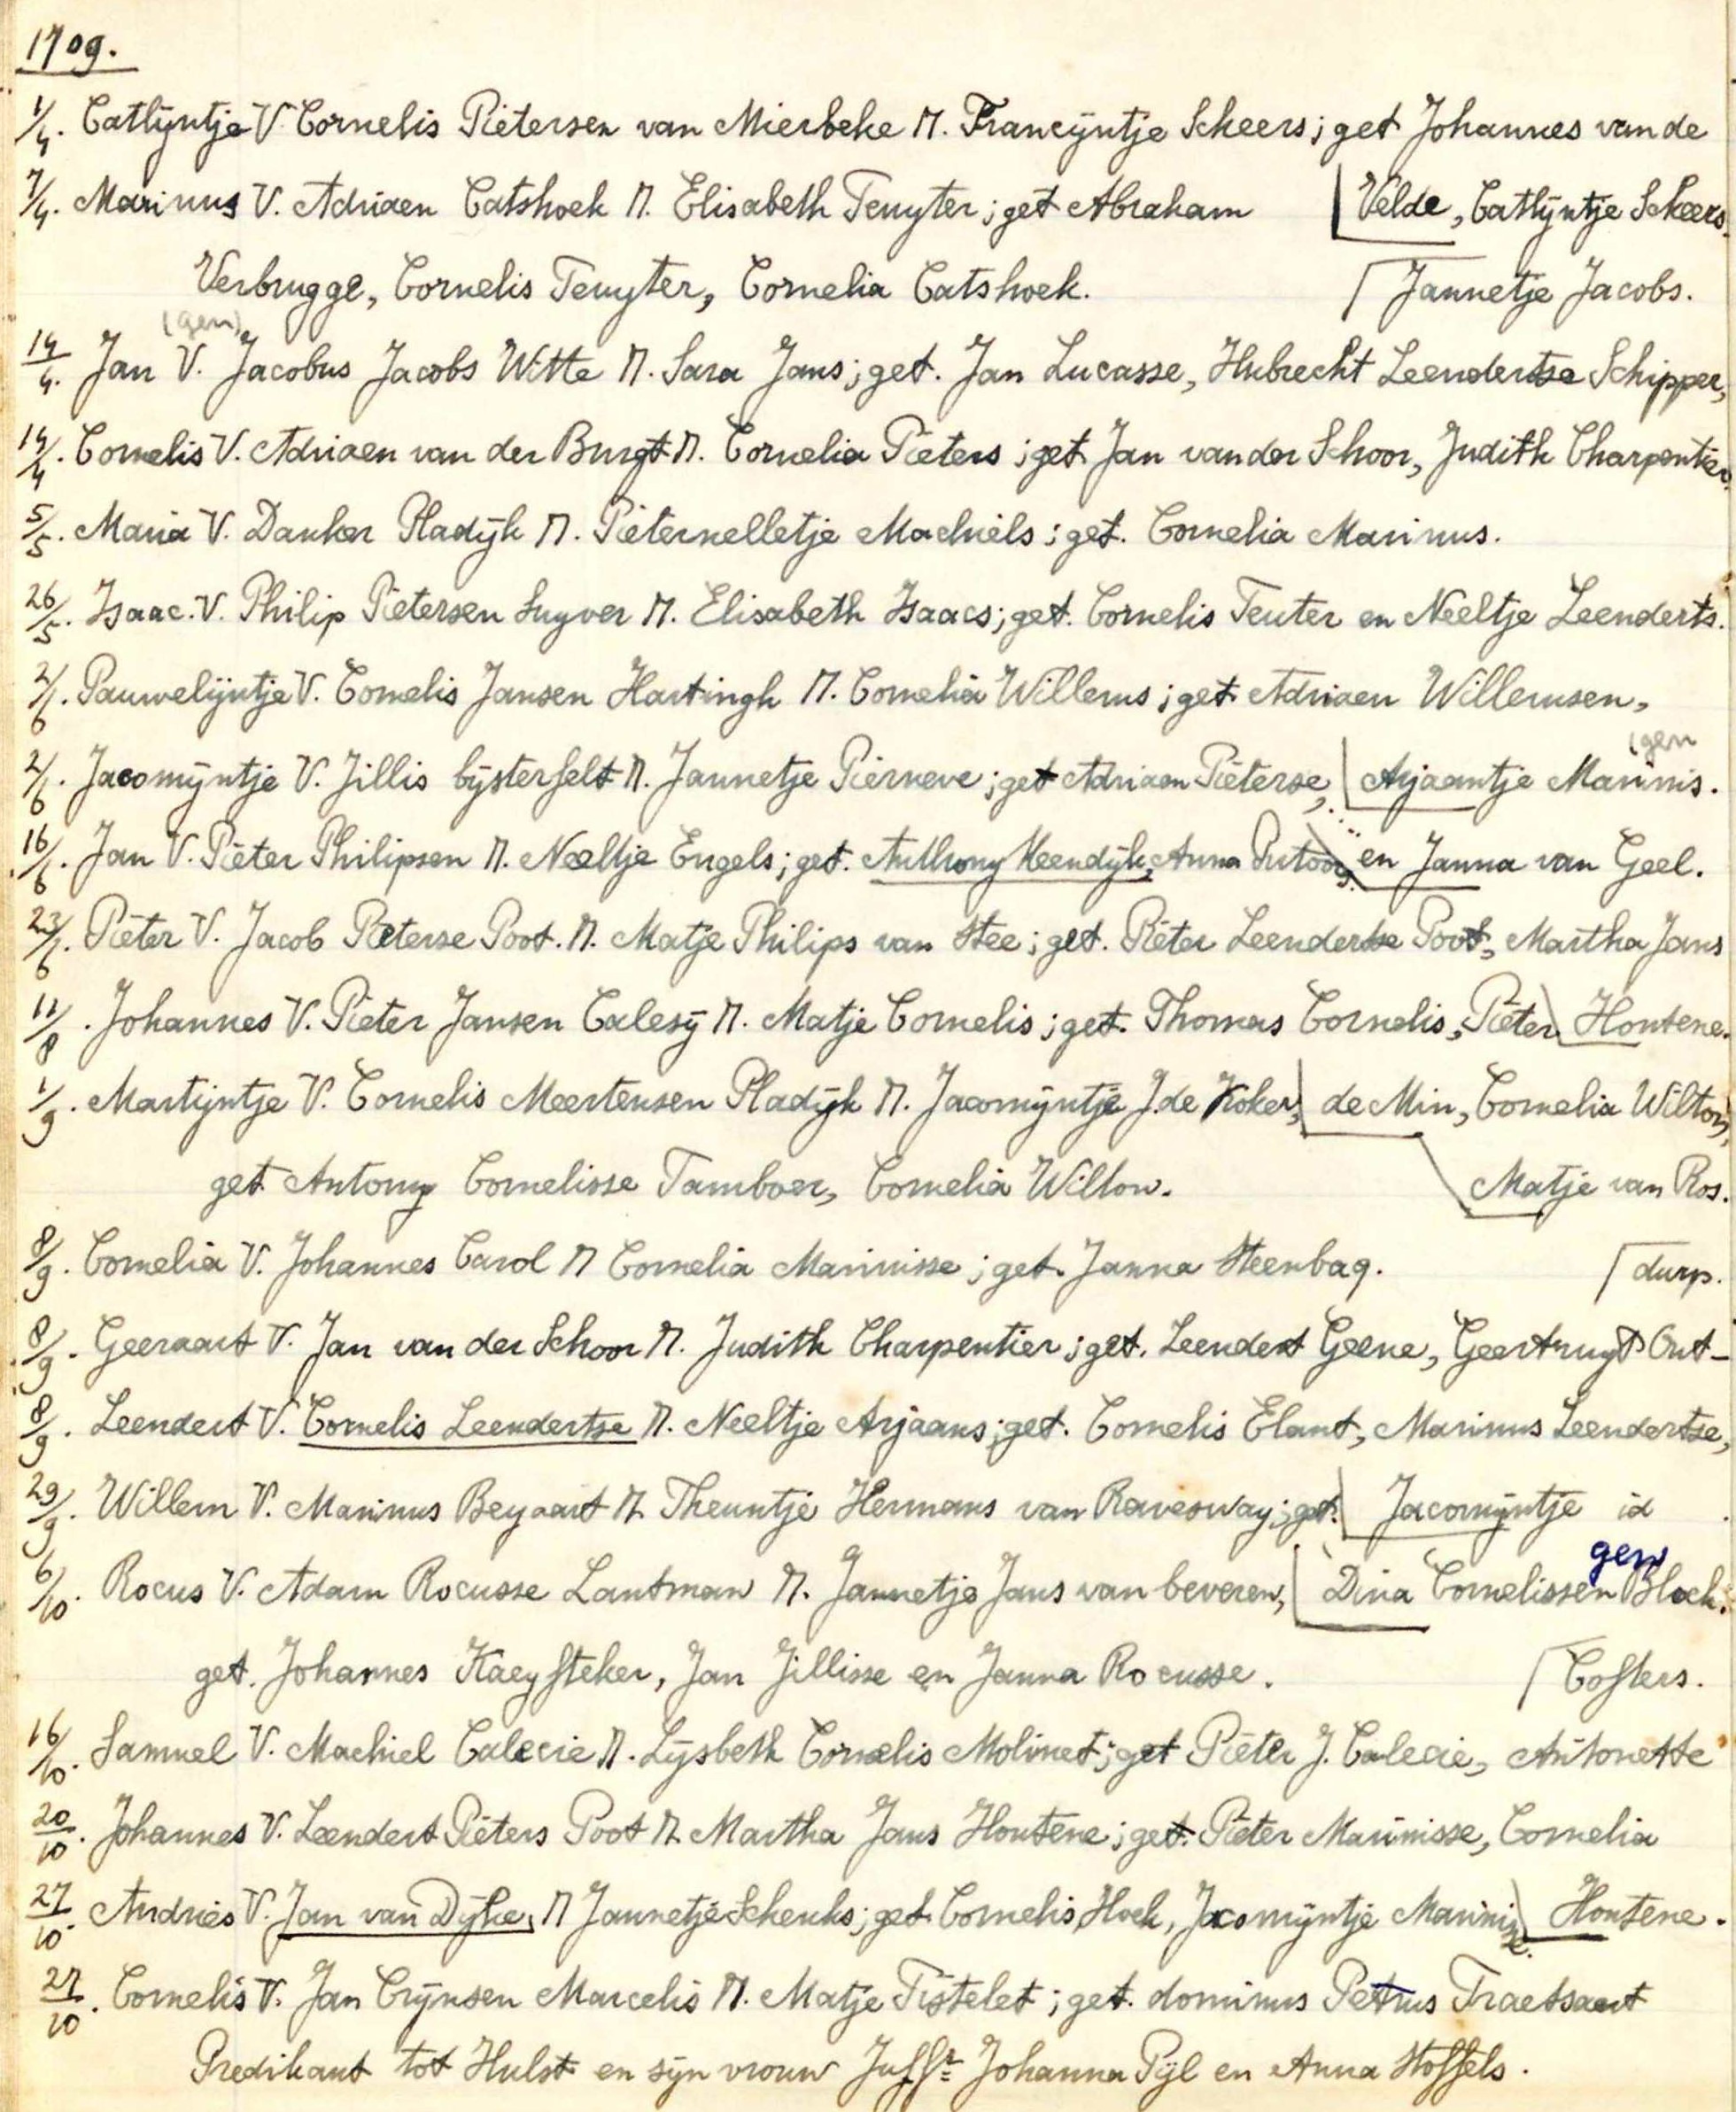 1709.
1/4. Catlijntje V. Cornelis Pietersen van Mierbeke M. Francijntje Scheers; get Johannes van de
7/4. Marinus V. Adriaen Catshoek M. Elisabeth Teuyter; get Abraham | Velde, Catlijntje Scheers.
Verbrugge, Cornelis Teuyter, Cornelia Catshoek. | Jannetje Jacobs.
(gen)
14/4. Jan V. Jacobus Jacobs Witte M. Sara Jans; get. Jan Lucasse, Hubrecht Leendertse Schipper,
14/4. Cornelis V. Adriaen van der Burgt M. Cornelia Pieters; get Jan van der Schoor, Judith Charpentier.
5/5. Maria V. Danker Pladijk M. Pieternelletje Machiels; get. Cornelia Marinus.
26/5. Isaac. V. Philip Pietersen Luyver M. Elisabeth Isaacs; get. Cornelis Teuter en Neeltje Leenderts.
2/6. Pauwelijntje V. Cornelis Jansen Hartingh M. Cornelia Willems; get Adriaen Willemsen,
(gen
2/6. Jacomijntje V. Jillis bijsterfelt M. Jannetje Pierneve; get Adriaen Pieterse, | Arjaantje Marinis.
16/6. Jan V. Pieter Philipsen M. Neeltje Engels; get. Anthony Meendijk, Anna en Janna van Geel.
23/6. Pieter V. Jacob Pieterse Poot. M. Matje Philips van Stee; get. Pieter Leendertse Poot, Martha Jans
11/8. Johannes V. Pieter Jansen Calesij M. Matje Cornelis; get. Thomas Cornelis, Pieter | Hontene.
1/9. Martijntje V. Cornelis Meertensen Pladijk M. Jacomijntje J. de Koker, | de Min, Cornelia Wilton,
get Antony Cornelisse Tamboer, Cornelia Wilton. | Matje van Ros.
8/9. Cornelia V. Johannes Carol M Cornelia Marinisse; get. Janna Steenbag. | durp.
8/9. Geeraart V. Jan van der Schoor M. Judith Charpentier; get. Leendert Geene, Geertruyt Out-
8/9. Leendert V. Cornelis Leendertse M. Neeltje Arjaans; get. Cornelis Elant, Marinus Leendertse,
29/9. Willem V. Marinus Beyaart M. Theuntje Hermans van Raveswaij; get. | Jacomijntje id
gen
6/10. Rocus V. Adam Rocusse Lantman M. Jannetje Jans van beveren, | Dina Cornelissen Block.
get. Johannes Kaeysteker, Jan Jillisse en Janna Rocusse. | Costers.
16/10. Samuel V. Machiel Calecie M. Lijsbeth Cornelis Molinet; get Pieter J. Calecie, Antonette
20/10. Johannes V. Leendert Pieters Poot M. Martha Jans Hontene; get. Pieter Marinisse, Cornelia
27/10. Andries V. Jan van Dijke, M Jannetje Schenks; get Cornelis Hoek, Jacomijntje Marinisse. | Hontene.
27/10. Cornelis V. Jan Crijnsen Marcelis M. Matje Tistelet; get. dominus Petrus Traetsaert
Predikant tot Hulst en sijn vrouw Juffr Johanna Pijl en Anna Stoffels.